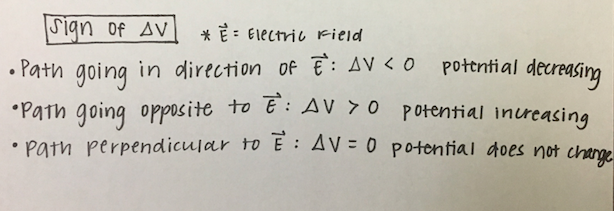 Sign of ΔV * E⃗ = Electric Field
• Path going in direction of E⃗ : ΔV < 0 potential decreasing
• Path going opposite to E⃗ : ΔV > 0 potential increasing
• Path perpendicular to E⃗ : ΔV = 0 potential does not change